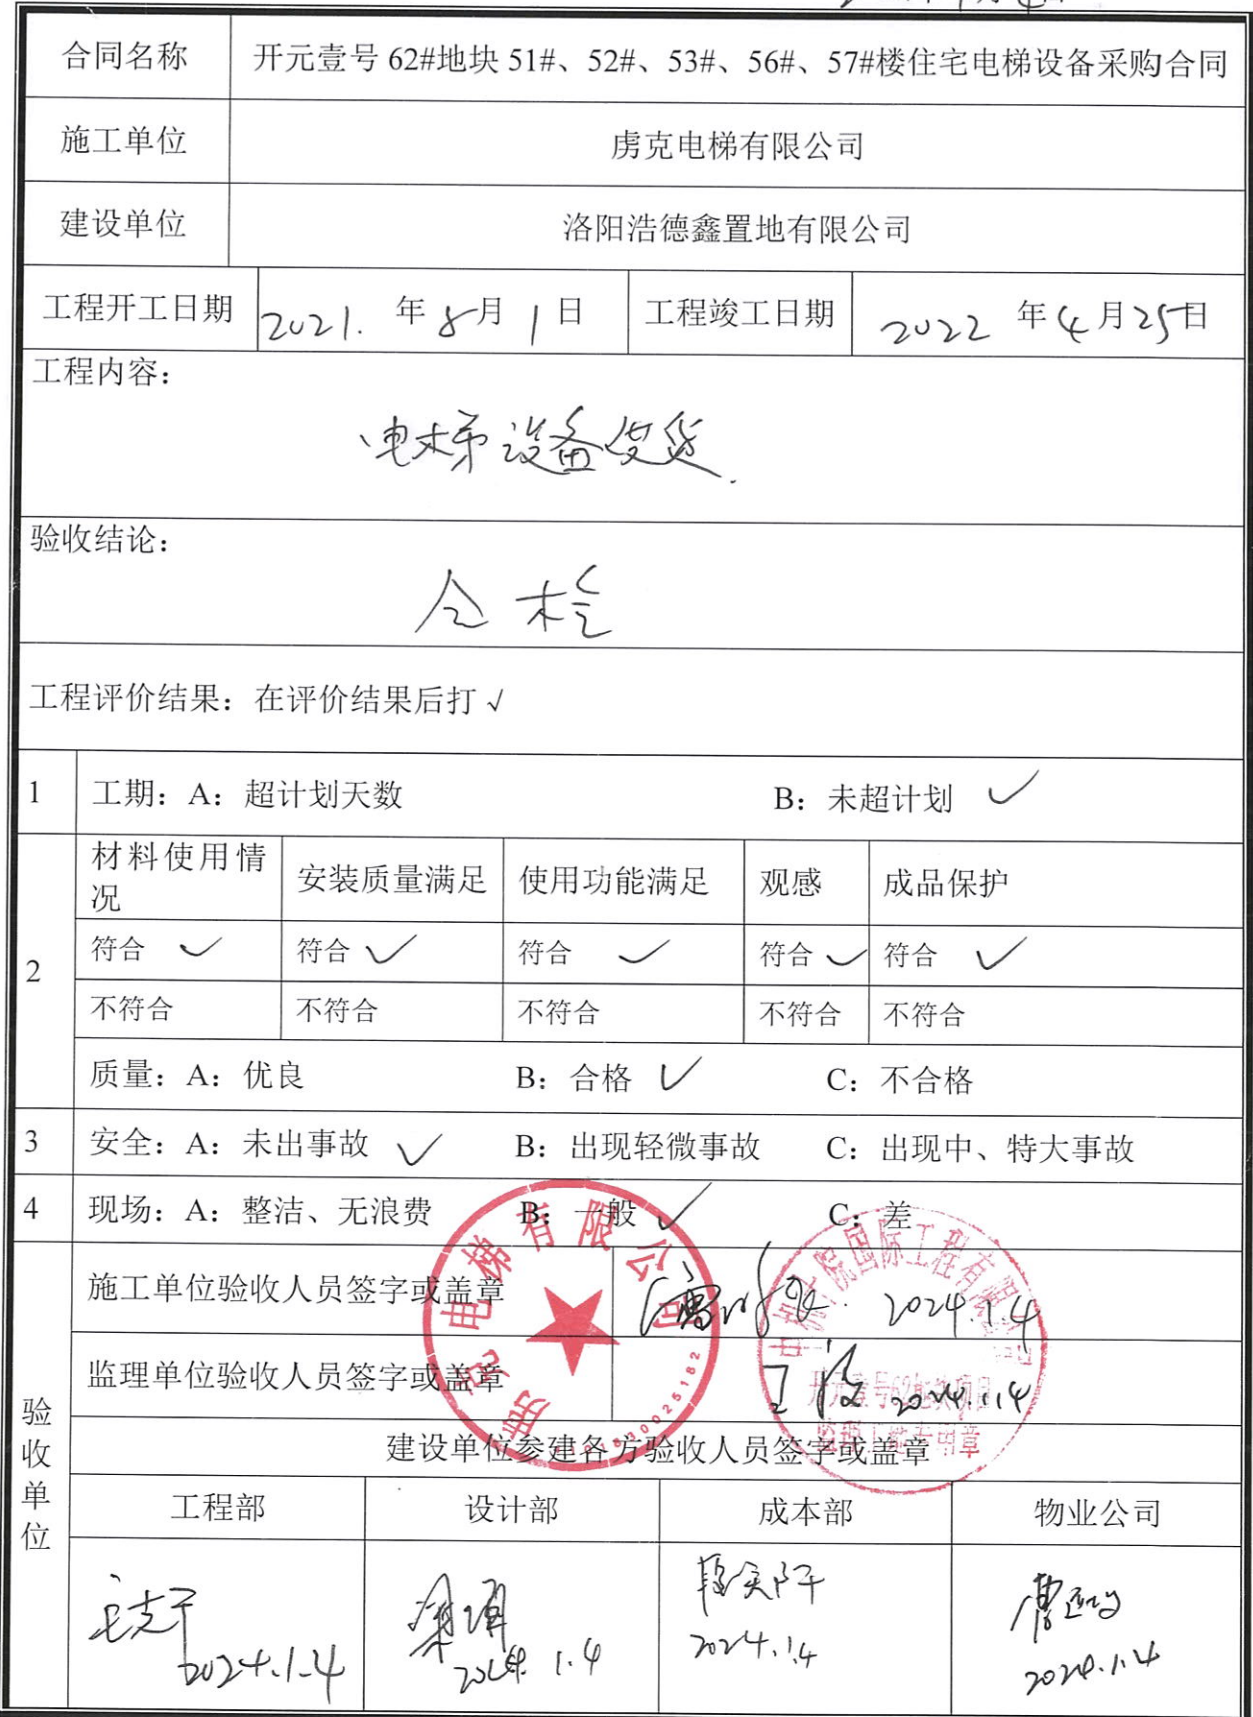 合同名称 开元壹号 62#地块 51#、52#、53#、56#、57#楼住宅电梯设备采购合同
施工单位 虏克电梯有限公司
建设单位 洛阳浩德鑫置地有限公司
工程开工日期 2021. 年 8月 1日 工程竣工日期 2022 年4月25日
工程内容：
电梯设备发货.
验收结论：
合格
工程评价结果：在评价结果后打 √
1 工期：A：超计划天数 B：未超计划 ✓
2
材料使用情况 安装质量满足 使用功能满足 观感 成品保护
符合 ✓ 符合 ✓ 符合 ✓ 符合 ✓ 符合 ✓
不符合 不符合 不符合 不符合 不符合
质量：A：优良 B：合格 ✓ C：不合格
3 安全：A：未出事故 ✓ B：出现轻微事故 C：出现中、特大事故
4 现场：A：整洁、无浪费 B：一般 ✓ C：差
验收单位
施工单位验收人员签字或盖章 2024.1.4
监理单位验收人员签字或盖章 2024.1.4
建设单位参建各方验收人员签字或盖章
工程部 设计部 成本部 物业公司
2024.1.4 2024. 1.4 2024.1.4 2024.1.4
虏克电梯有限公司
国际工程有限公司
开元壹号62地块项目